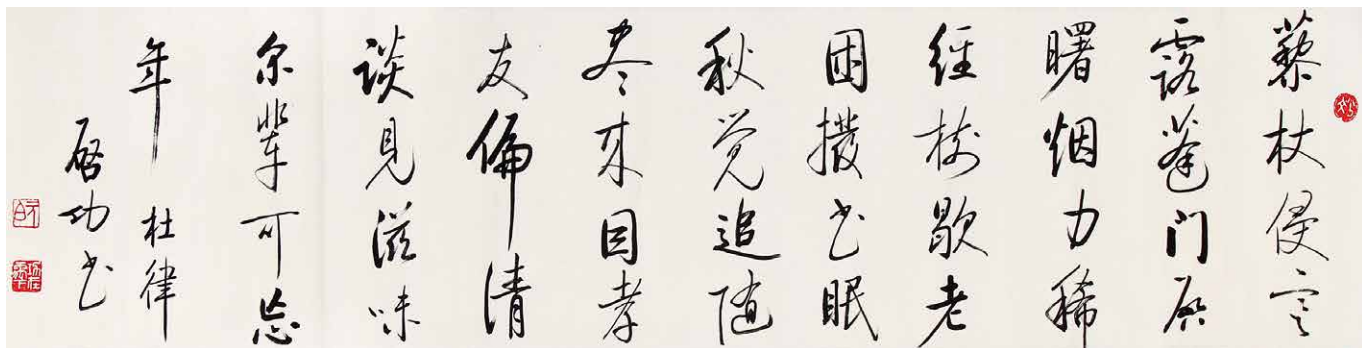 藜杖侵寒
露蓬门启
曙烟力稀
经树歇老
困拨书眠
秋觉追随
尽来因孝
友偏清
谈见滋味
尔辈可忘
年 杜律
启功书
元白